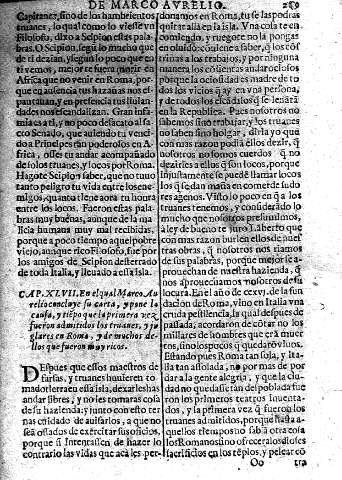 DE MARCO AVRELIO.
Capitanes, sino de los hambrientos
truanes, lo qual como lo viesse vn
Filosofo, dixo a Scipion estas pala-
bras. O Scipion, segũ lo mucho que
de ti dezian, y segun lo poco que en
ti vemos, mejor te fuera morir en
Africa que no venir en Roma, por-
que en ausencia tus hazañas nos es-
pantauan, y en presencia tus liuian-
dades nos escandalizan. Gran infa-
mia es a ti, y no poco desacato al sa-
cro Senado, que auiendo tu venci-
do a Principes tan poderosos en A-
frica, osses tu andar acompañado
de solos truanes, y locos por Roma.
Hagote Scipion saber, que no tuuo
tanto peligro tu vida entre los ene-
migos, quanto tiene aora tu honra
entre los locos. Fueron estas pala-
bras muy buenas, aunque de la ma
licia humana muy mal recibidas,
porque a poco tiempo aquel pobre
viejo, aunque rico Filosofo, fue por
los amigos de Scipion desterrado
de toda Italia, y lleuado a essa isla.
CAP. XLVII. En el qual Marco Au
relio concluye su carta, y pone la
causa, y tiẽpo que la primera vez
fueron admitidos los truanes, y ju
glares en Roma, y de muchos de-
llos que fueron muy ricos.
DEspues que essos maestros de
farsas, y truanes huuieren to-
mado tierra en essa isla, dexarles has
andar libres, y no les tomaras cosa
de su hazienda; y junto con esto ter-
nas cuidado de auisarlos, a que no
seã ossados de exercitar sus oficios,
porque si intentassen de hazer lo
contrario las vidas que acá les per-
donamos en Roma, tu se las podras
quitar allá en la isla. Vna cosa te en-
comiendo, y ruegote no la pongas
en oluido: conuiene a saber, q̃ los cõs
triñas a los trabajos, y por ninguna
manera los cõsientas andar ociosos
porque la ociosidad es madre de to
dos los vicios q̃ ay en vna persona,
y de todos los escãdalos q̃ se leuãtã
en la Republica. Pues nosotros no
sabemos sino trabajar, y los truanes
no saben sino holgar, diria yo que
con mas razon podia ellos dezir, q̃
nosotros no somos cuerdos q̃ no
dezirles a ellos q̃ son locos, porque
injustamente se puede llamar locos
los q̃ se dan maña en comer de sudo
res agenos. Visto lo poco en q̃ a los
truanes tenemos, y considerado lo
mucho que nosotros presumimos,
a ley de bueno te juro Lãberto que
con mas razon burlen ellos de nues
tras obras, q̃ nosotros nos riamos
de sus palabras, porque mejor se a-
prouechan de nuestra hazienda, q̃
nos aprouechamos nosotros de su
locura. En el año de ccxvj. de la fun
dacion de Roma, vino en Italia vna
cruda pestilencia, la qual despues de
passada, acordaron de cõtar no los
millares de hombres que eran muer
tos, sino los pocos q̃ quedarõ viuos.
Estando pues Roma tan sola, y Ita-
lia tan assolada, no por mas de por
dar a la gente alegria, y que la ciu-
dad no quedasse tan despoblada fue
ron los primeros teatros inuenta-
dos, y la primera vez q̃ fueron los
truanes admitidos, porque hasta a-
quellos tiempos no sabiã otra cosa
los Romanos sino ofrecer a los dioses
sacrificios en los tẽplos, y pelear cõ
Oo